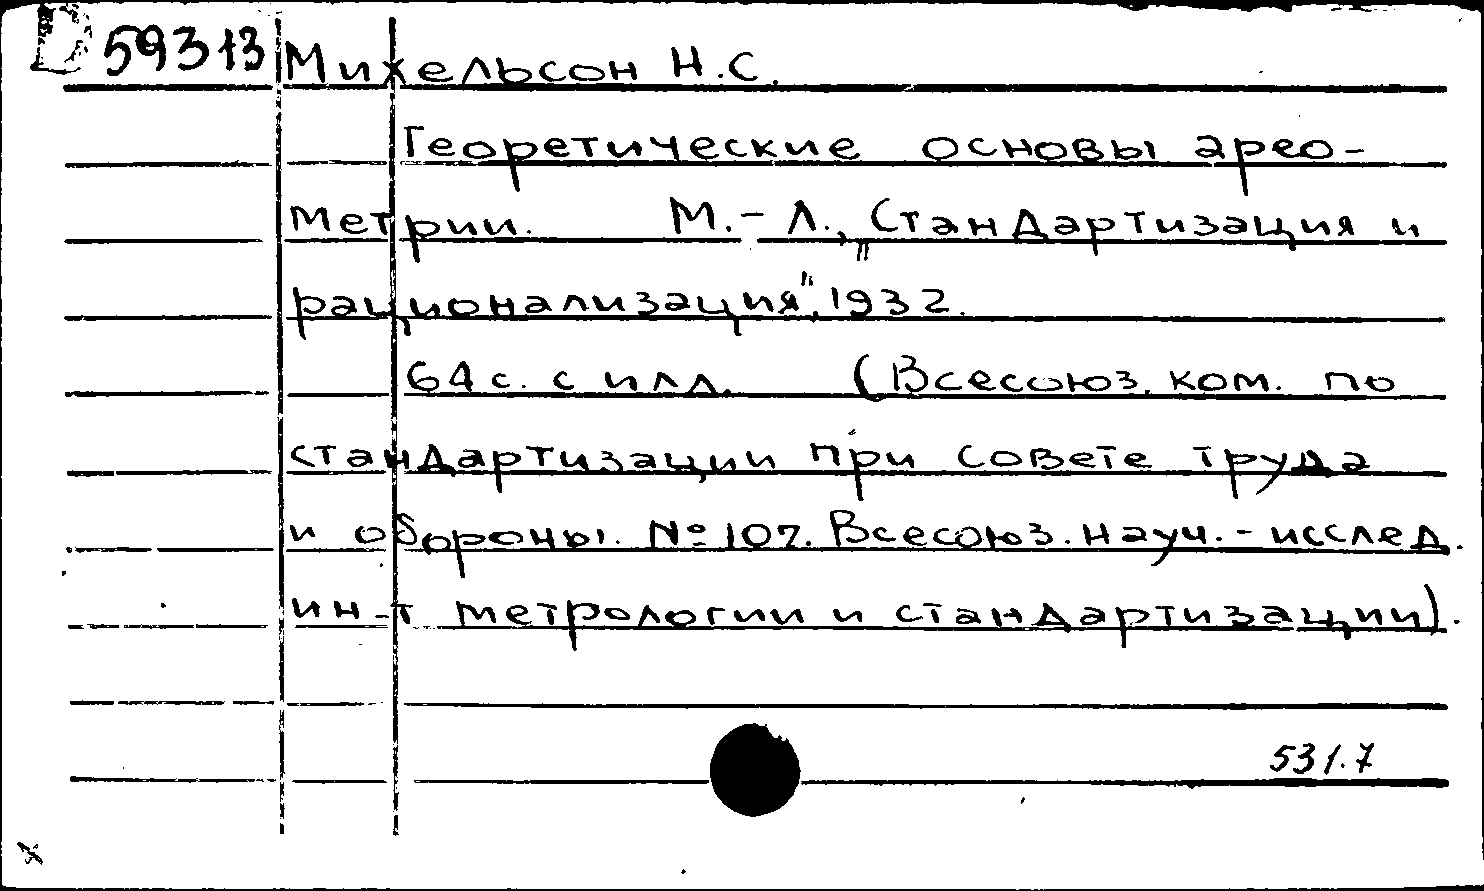 D 59313 Михельсон Н.С.
Теоретические основы арео-
метрии. М.-Л., „Стандартизация и
рационализация", 1932.
64 с. с илл. (Всесоюз. ком. по
стандартизации при совете труда
и обороны. № 107. Всесоюз. науч.-исслед.
ин-т метрологии и стандартизации).
531.7